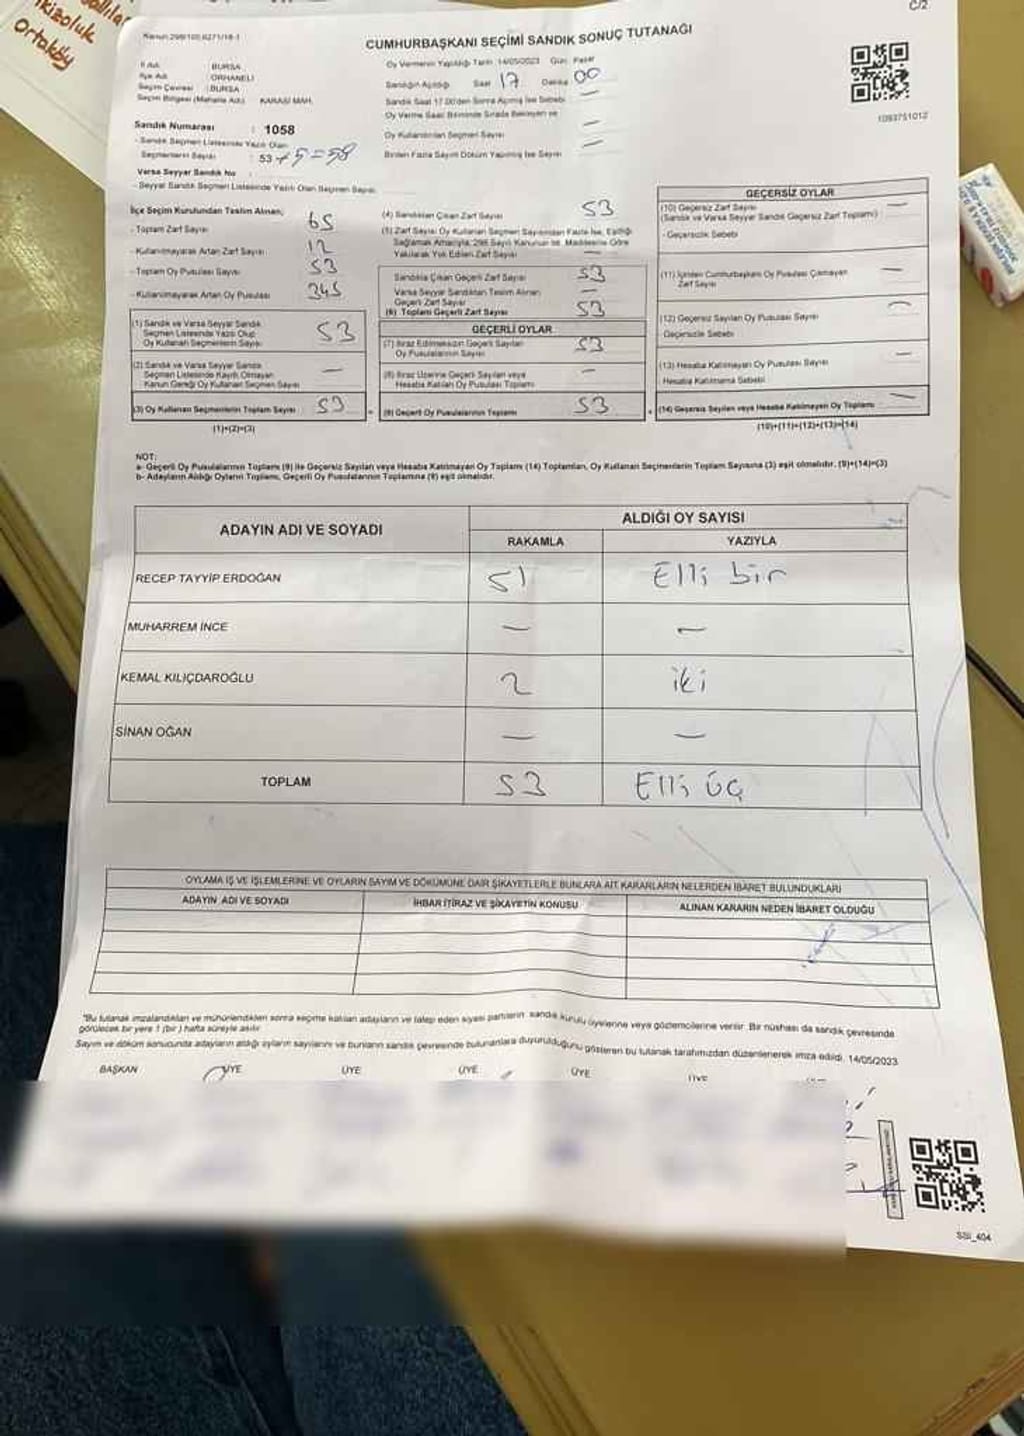 kızoluk
Ortaköy
C/2
CUMHURBAŞKANI SEÇİMİ SANDIK SONUÇ TUTANAĞI
İl Adı : BURSA
İlçe Adı : ORHANELİ
Seçim Çevresi : BURSA
Seçim Bölgesi (Mahalle Adı) : KARASI MAH.
Sandık Numarası : 1058
- Sandık Seçmen Listesinde Yazılı Olan
Seçmenlerin Sayısı : 53 + 5 = 58
Varsa Seyyar Sandık No :
- Seyyar Sandık Seçmen Listesinde Yazılı Olan Seçmen Sayısı:
Oy Vermenin Yapıldığı Tarih: 14/05/2023 Gün: Pazar
Sandığın Açıldığı Saat 17 Dakika 00
Sandık Saat 17.00'den Sonra Açılmış İse Sebebi —
Oy Verme Saati Bitiminde Sırada Bekleyen ve
Oy Kullandırılan Seçmen Sayısı —
Birden Fazla Sayım Döküm Yapılmış İse Sayısı —
1093751012
İlçe Seçim Kurulundan Teslim Alınan;
- Toplam Zarf Sayısı 65
- Kullanılmayarak Artan Zarf Sayısı 12
- Toplam Oy Pusulası Sayısı 53
- Kullanılmayarak Artan Oy Pusulası 345
(1) Sandık ve Varsa Seyyar Sandık
Seçmen Listesinde Yazılı Olup
Oy Kullanan Seçmenlerin Sayısı 53
(2) Sandık ve Varsa Seyyar Sandık
Seçmen Listesinde Kayıtlı Olmayan
Kanun Gereği Oy Kullanan Seçmen Sayısı —
(3) Oy Kullanan Seçmenlerin Toplam Sayısı 53
(1)+(2)=(3)
(4) Sandıktan Çıkan Zarf Sayısı 53
(5) Zarf Sayısı Oy Kullanan Seçmen Sayısından Fazla İse, Eşitliği
Sağlamak Amacıyla, 298 Sayılı Kanunun 98. Maddesine Göre
Yakılarak Yok Edilen Zarf Sayısı —
Sandıkta Çıkan Geçerli Zarf Sayısı 53
Varsa Seyyar Sandıktan Teslim Alınan
Geçerli Zarf Sayısı —
(6) Toplam Geçerli Zarf Sayısı 53
GEÇERLİ OYLAR
(7) İtiraz Edilmeksizin Geçerli Sayılan
Oy Pusulalarının Sayısı 53
(8) İtiraz Üzerine Geçerli Sayılan veya
Hesaba Katılan Oy Pusulası Toplamı —
(9) Geçerli Oy Pusulalarının Toplamı 53
GEÇERSİZ OYLAR
(10) Geçersiz Zarf Sayısı —
(Sandık ve Varsa Seyyar Sandık Geçersiz Zarf Toplamı)
- Geçersizlik Sebebi
(11) İçinden Cumhurbaşkanı Oy Pusulası Çıkmayan
Zarf Sayısı —
(12) Geçersiz Sayılan Oy Pusulası Sayısı —
Geçersizlik Sebebi
(13) Hesaba Katılmayan Oy Pusulası Sayısı —
Hesaba Katılmama Sebebi
(14) Geçersiz Sayılan veya Hesaba Katılmayan Oy Toplamı —
(10)+(11)+(12)+(13)=(14)
NOT:
a- Geçerli Oy Pusulalarının Toplamı (9) ile Geçersiz Sayılan veya Hesaba Katılmayan Oy Toplamı (14) Toplamları, Oy Kullanan Seçmenlerin Toplam Sayısına (3) eşit olmalıdır. (9)+(14)=(3)
b- Adayların Aldığı Oyların Toplamı, Geçerli Oy Pusulalarının Toplamına (9) eşit olmalıdır.
ADAYIN ADI VE SOYADI
ALDIĞI OY SAYISI
RAKAMLA YAZIYLA
RECEP TAYYİP ERDOĞAN 51 Elli bir
MUHARREM İNCE — —
KEMAL KILIÇDAROĞLU 2 iki
SİNAN OĞAN — —
TOPLAM 53 Elli üç
OYLAMA İŞ VE İŞLEMLERİNE VE OYLARIN SAYIM VE DÖKÜMÜNE DAİR ŞİKAYETLERLE BUNLARA AİT KARARLARIN NELERDEN İBARET BULUNDUKLARI
ADAYIN ADI VE SOYADI İHBAR İTİRAZ VE ŞİKAYETİN KONUSU ALINAN KARARIN NEDEN İBARET OLDUĞU
*Bu tutanak imzalandıktan ve mühürlendikten sonra seçime katılan adayların ve talep eden siyasi partilerin sandık kurulu üyelerine veya gözlemcilerine verilir. Bir nüshası da sandık çevresinde
görülecek bir yere 1 (bir) hafta süreyle asılır.
Sayım ve döküm sonucunda adayların aldığı oyların sayılarını ve bunların sandık çevresinde bulunanlara duyurulduğunu gösteren bu tutanak tarafımızdan düzenlenerek imza edildi. 14/05/2023
BAŞKAN ÜYE ÜYE ÜYE ÜYE ÜYE
SSI_404